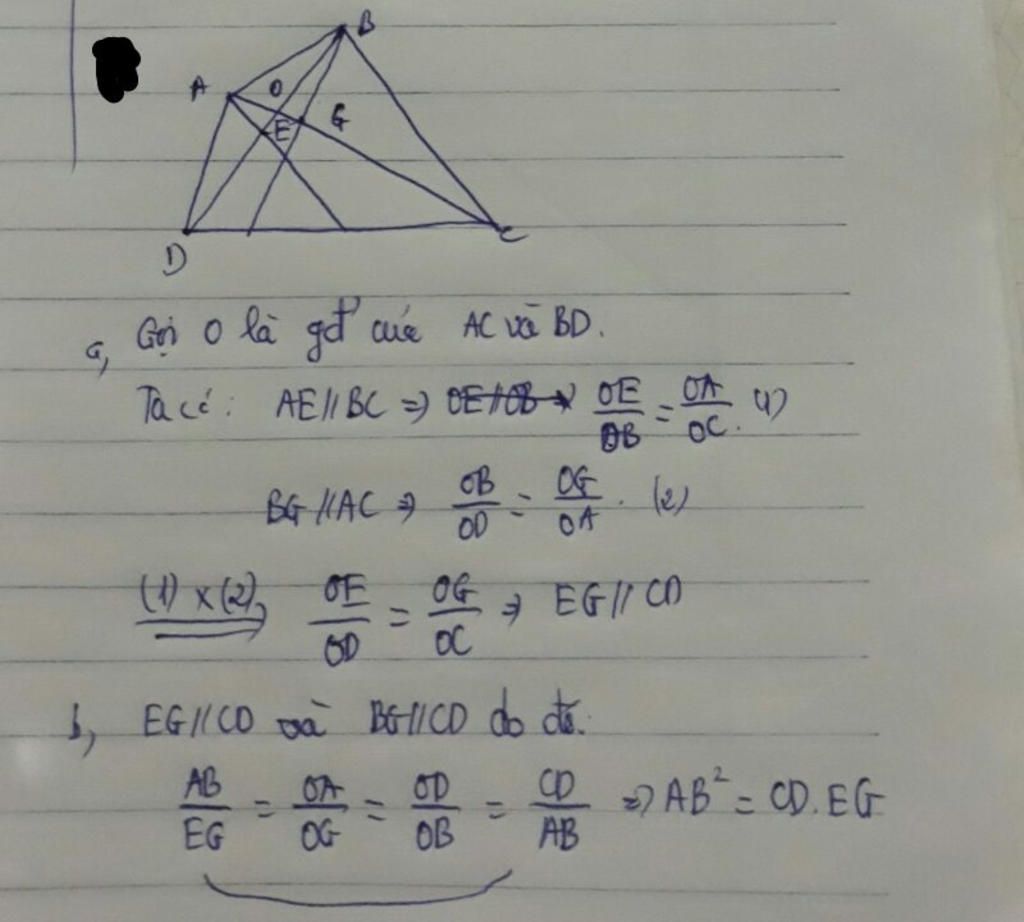 B
A O
E G
D C
a, Gọi O là gđ của AC và BD.
Ta có: AE//BC ⇒ OE//OB → OE/OB = OA/OC. (1)
BG//AC ⇒ OB/OD = OG/OA. (2)
(1) x (2), OE/OD = OG/OC ⇒ EG//CD
b, EG//CD và BG//CD do đó:
AB/EG = OA/OG = OD/OB = CD/AB ⇒ AB² = CD.EG